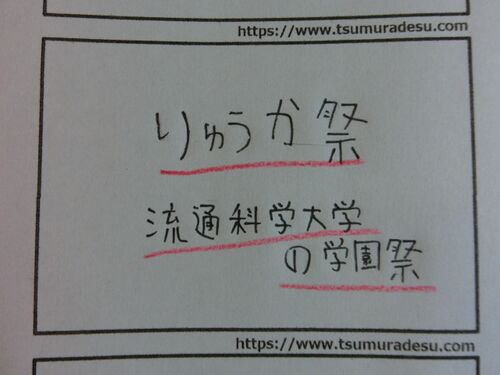 https://www.tsumuradesu.com
りゅうか祭
流通科学大学
の学園祭
https://www.tsumuradesu.com